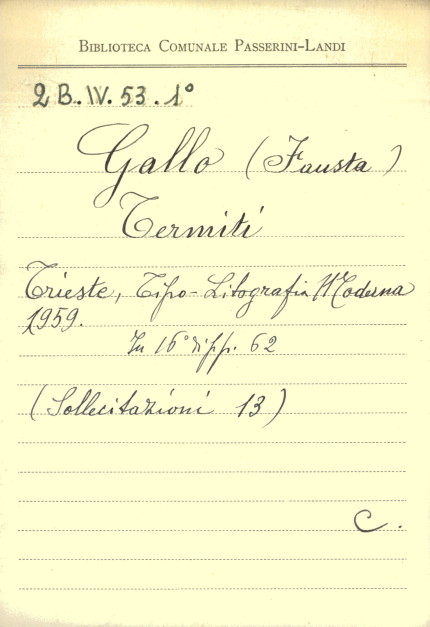 BIBLIOTECA COMUNALE PASSERINI-LANDI
2 B.IV.53.1°
Gallo (Fausta)
Termiti
Trieste, Tipo-Litografia Moderna
1959.
In 16° di pp. 62
(Sollecitazioni 13)
C.